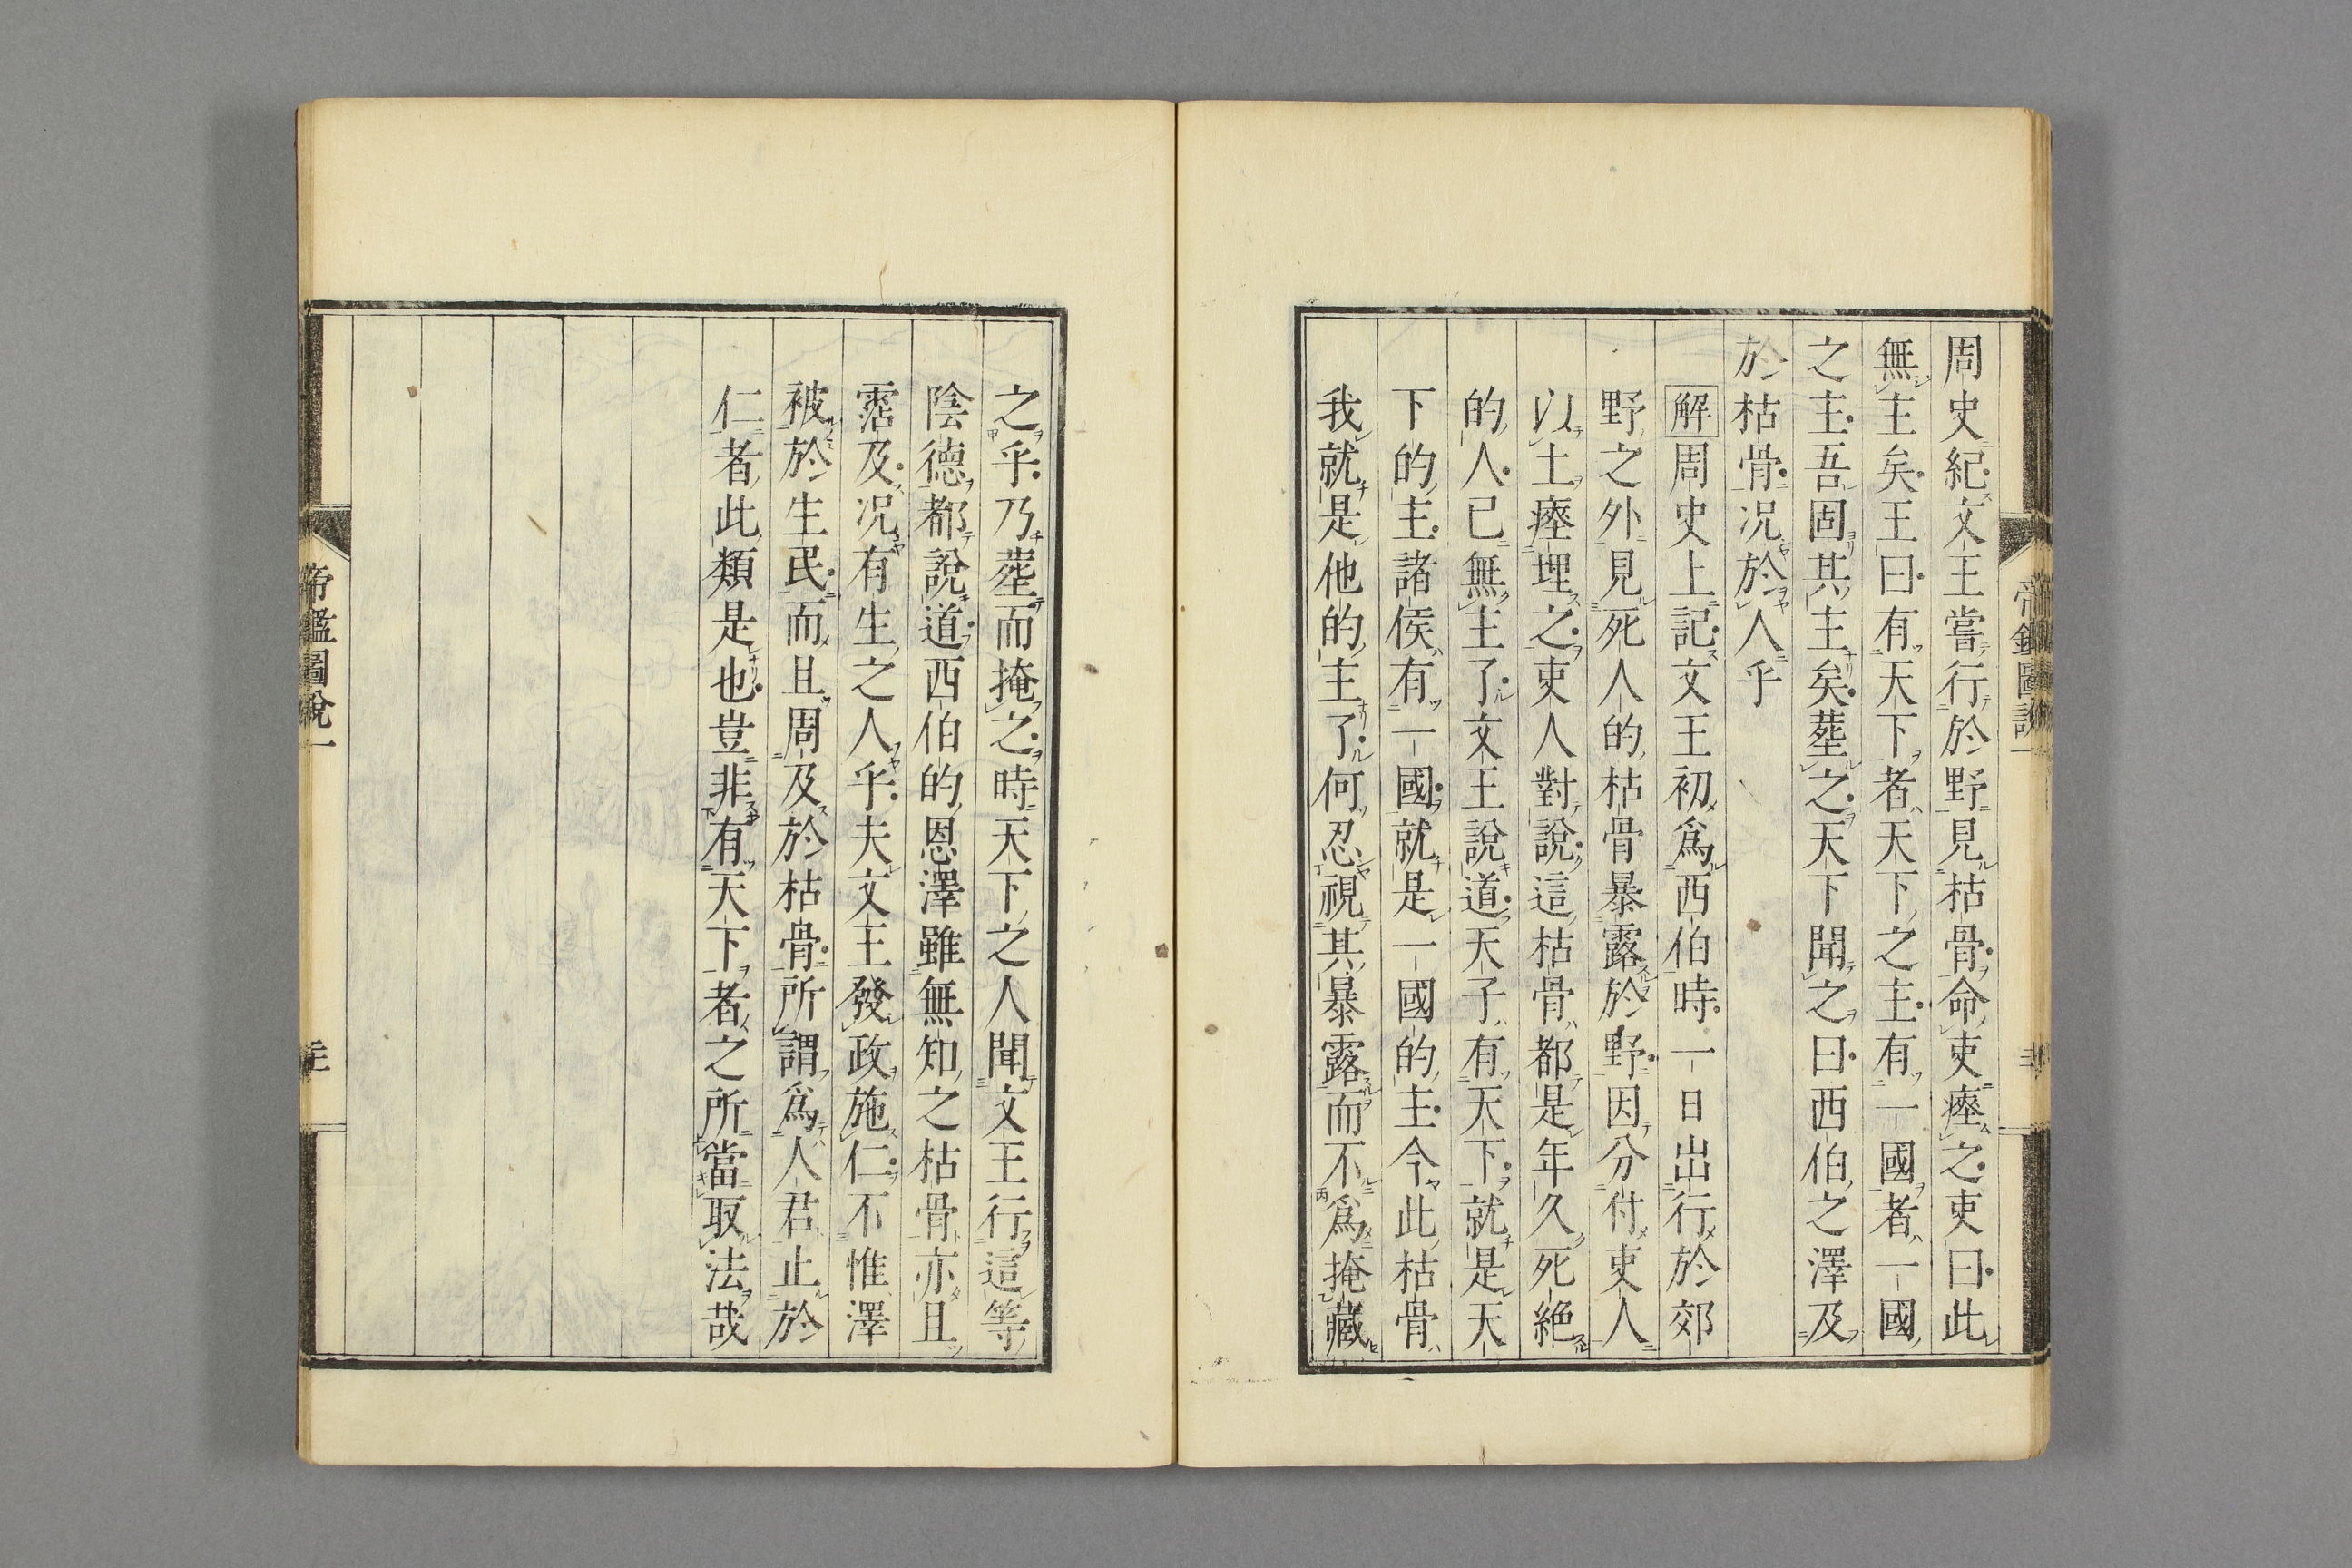 周史紀文王嘗行於野見枯骨命吏瘞之吏曰此
無主矣王曰有天下者天下之主有一國者一國
之主吾固其主矣葬之天下聞之曰西伯之澤及
於枯骨況於人乎
解周史上記文王初爲西伯時一日出行於郊
野之外見死人的枯骨暴露於野因分付吏人
以土瘞埋之吏人對說這枯骨都是年久死絕
的人已無主了文王說道天子有天下就是天
下的主諸侯有一國就是一國的主今此枯骨
我就是他的主了何忍視其暴露而不爲掩藏
之乎乃葬而掩之時天下之人聞文王行這等
陰德都說道西伯的恩澤雖無知之枯骨亦且
霑及況有生之人乎夫文王發政施仁不惟澤
被於生民而且周及於枯骨所謂爲人君止於
仁者此類是也豈非有天下者之所當取法哉
帝鑑圖說一